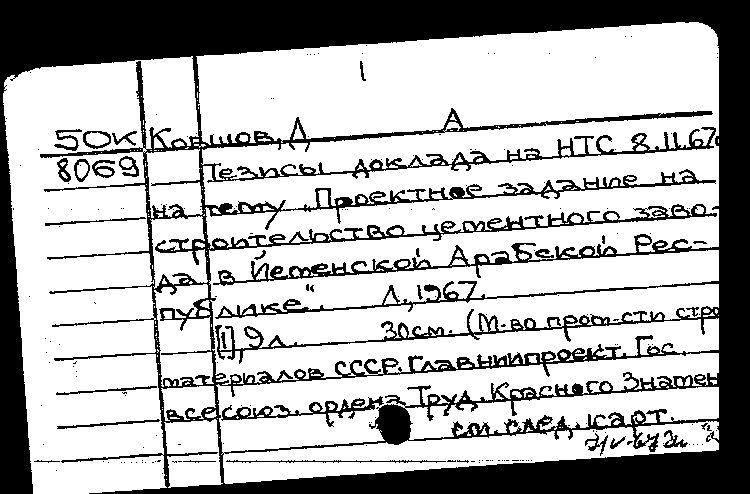 1
А
50К Ковшов, Д
8069 Тезисы доклада на НТС 8.II.67г
на тему "Проектное задание на
строительство цементного заво-
да в Йеменской Арабской Рес-
публике". Л., 1967.
[1], 9 л. 30см. (М-во пром-сти стро
материалов СССР. Главниипроект. Гос.
всесоюз. ордена Труд. Красного Знамен
см. след. карт.